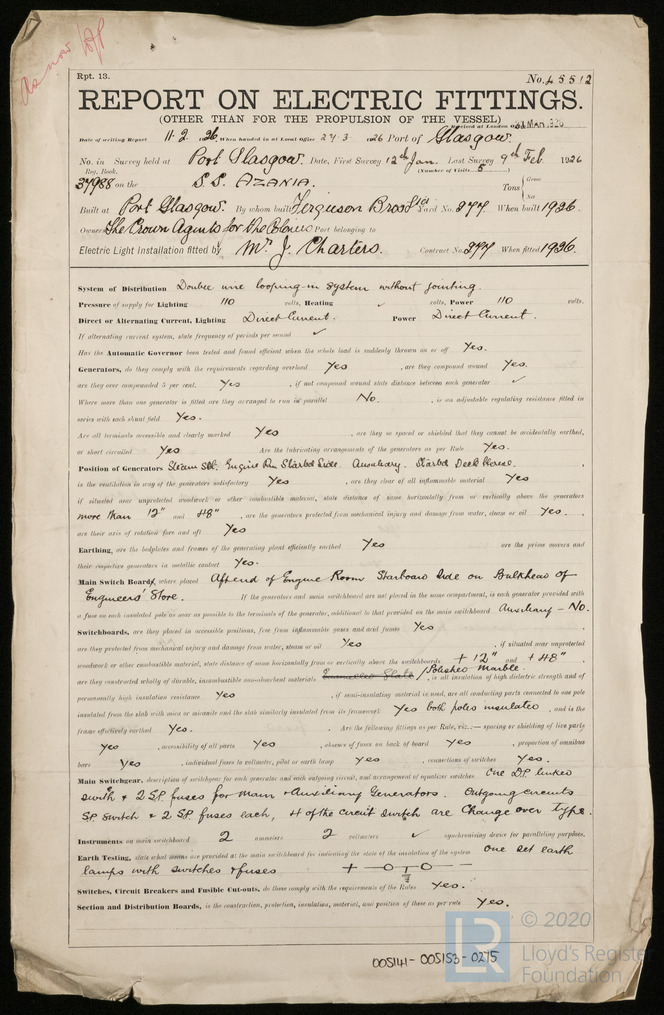 As now
Rpt. 13.
No. 45512
REPORT ON ELECTRIC FITTINGS.
(OTHER THAN FOR THE PROPULSION OF THE VESSEL)
Date of writing Report 11. 2. 1926. When handed in at Local Office 27 3 1926 Port of Glasgow.
No. in Survey held at Port Glasgow. Date, First Survey 12th Jan. Last Survey 9th Feb. 1926
Reg. Book. (Number of Visits 5)
37988 on the S.S. AZANIA. Tons { Gross Net
Built at Port Glasgow. By whom built Ferguson Bros Ltd Yard No. 277. When built 1926
Owners The Crown Agents for the Colonies Port belonging to
Electric Light Installation fitted by Mr J. Charters. Contract No. 277. When fitted 1926.
System of Distribution Double wire looping-in system without jointing.
Pressure of supply for Lighting 110 volts, Heating ✓ volts, Power 110 volts.
Direct or Alternating Current, Lighting Direct Current. Power Direct Current.
If alternating current system, state frequency of periods per second ✓
Has the Automatic Governor been tested and found efficient when the whole load is suddenly thrown on or off Yes.
Generators, do they comply with the requirements regarding overload Yes, are they compound wound Yes.
are they over compounded 5 per cent. Yes, if not compound wound state distance between each generator ✓
Where more than one generator is fitted are they arranged to run in parallel No., is an adjustable regulating resistance fitted in
series with each shunt field Yes.
Are all terminals accessible and clearly marked Yes, are they so spaced or shielded that they cannot be accidentally earthed,
or short circuited Yes Are the lubricating arrangements of the generators as per Rule Yes.
Position of Generators Steam Set. Engine Rm Starbd Side. Auxiliary. Starbd Deck House.
is the ventilation in way of the generators satisfactory Yes, are they clear of all inflammable material Yes
if situated near unprotected woodwork or other combustible material, state distance of same horizontally from or vertically above the generators
more than 12" and 48", are the generators protected from mechanical injury and damage from water, steam or oil Yes.
are their axis of rotation fore and aft Yes
Earthing, are the bedplates and frames of the generating plant efficiently earthed Yes are the prime movers and
their respective generators in metallic contact Yes.
Main Switch Boards, where placed Aft end of Engine Room Starboard Side on Bulkhead of
Engineers' Store. If the generators and main switchboard are not placed in the same compartment, is each generator provided with
a fuse on each insulated pole as near as possible to the terminals of the generator, additional to that provided on the main switchboard Auxiliary - No.
Switchboards, are they placed in accessible positions, free from inflammable gases and acid fumes Yes
are they protected from mechanical injury and damage from water, steam or oil Yes, if situated near unprotected
woodwork or other combustible material, state distance of same horizontally from or vertically above the switchboards + 12" and + 48".
are they constructed wholly of durable, incombustible non-absorbent materials Enamelled Slate / Polished Marble, is all insulation of high dielectric strength and of
permanently high insulation resistance Yes, if semi-insulating material is used, are all conducting parts connected to one pole
insulated from the slab with mica or micanite and the slab similarly insulated from its framework Yes both poles insulated, and is the
frame effectively earthed Yes. Are the following fittings as per Rule, viz.:— spacing or shielding of live parts
Yes, accessibility of all parts Yes, absence of fuses on back of board Yes, proportion of omnibus
bars Yes, individual fuses to voltmeter, pilot or earth lamp Yes, connections of switches Yes.
Main Switchgear, description of switchgear for each generator and each outgoing circuit, and arrangement of equalizer switches One D.P. linked
switch & 2 S.P. fuses for main & Auxiliary Generators. Outgoing circuits
S.P. Switch & 2 S.P. fuses each, 4 of the circuit switch are Change over type.
Instruments on main switchboard 2 ammeters 2 voltmeters ✓ synchronising device for paralleling purposes.
Earth Testing, state what means are provided at the main switchboard for indicating the state of the insulation of the system One set earth
lamps with switches & fuses
Switches, Circuit Breakers and Fusible Cut-outs, do these comply with the requirements of the Rules Yes.
Section and Distribution Boards, is the construction, protection, insulation, material, and position of these as per rule Yes.
LR © 2020
Lloyd's Register
Foundation
005141-005153-0275